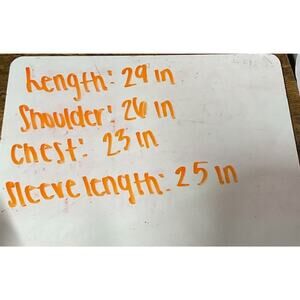 Length: 29 in
Shoulder: 26 in
Chest: 23 in
Sleeve length: 25 in